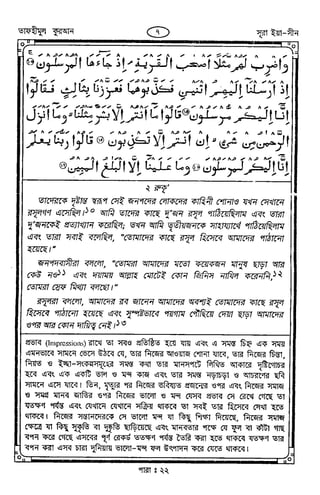 তাফহীমুল কুরআন ৭ সূরা ইয়া-সীন
وَاضْرِبْ لَهُمْ مَّثَلًا أَصْحٰبَ الْقَرْيَةِ ۘ إِذْ جَاءَهَا الْمُرْسَلُونَ
إِذْ أَرْسَلْنَا إِلَيْهِمُ اثْنَيْنِ فَكَذَّبُوهُمَا فَعَزَّزْنَا بِثَالِثٍ فَقَالُوا
إِنَّا إِلَيْكُمْ مُّرْسَلُونَ قَالُوا مَا أَنْتُمْ إِلَّا بَشَرٌ مِّثْلُنَا ۙ وَمَا أَنْزَلَ
الرَّحْمٰنُ مِنْ شَيْءٍ ۙ إِنْ أَنْتُمْ إِلَّا تَكْذِبُونَ قَالُوا رَبُّنَا يَعْلَمُ
إِنَّا إِلَيْكُمْ لَمُرْسَلُونَ وَمَا عَلَيْنَا إِلَّا الْبَلٰغُ الْمُبِينُ
২ রুকূ’
তাদেরকে দৃষ্টান্ত স্বরূপ সেই জনপদের লোকদের কাহিনী শোনাও যখন সেখানে
রসূলগণ এসেছিল।১০ আমি তাদের কাছে দু’জন রসূল পাঠিয়েছিলাম এবং তারা
দু’জনকেই প্রত্যাখ্যান করেছিল; তখন আমি তৃতীয়জনকে সাহায্যার্থে পাঠিয়েছিলাম
এবং তারা সবাই বলেছিল, “তোমাদের কাছে রসূল হিসেবে আমাদের পাঠানো
হয়েছে।”
জনপদবাসীরা বললো, “তোমরা আমাদের মতো কয়েকজন মানুষ ছাড়া আর
কেউ নও১১ এবং দয়াময় আল্লাহ মোটেই কোন জিনিস নাযিল করেননি,১২
তোমরা স্রেফ মিথ্যা বলছো।”
রসূলরা বললো, আমাদের রব জানেন আমাদের অবশ্যই তোমাদের কাছে রসূল
হিসেবে পাঠানো হয়েছে এবং সুস্পষ্টভাবে পয়গাম পৌঁছিয়ে দেয়া ছাড়া আমাদের
ওপর আর কোন দায়িত্ব নেই।১৩
প্রভাব (Impressions) রাখে তা সবও প্রতিষ্ঠিত হয়ে যায় এবং এ সমস্ত চিহ্ন এক সময়
এমনভাবে সামনে ভেসে উঠবে যে, তার নিজের আওয়াজ শোনা যাবে, তার নিজের চিন্তা,
নিয়ত ও ইচ্ছা-সংকল্পসমূহের সমস্ত কথা তার মানসপটে লিখিত আকারে দৃষ্টিগোচর
হবে এবং এক একটি ভাল ও মন্দ কাজ এবং তার সমস্ত নড়াচড়া ও আচরণের ছবি
সামনে এসে যাবে। তিন, মৃত্যুর পর নিজের ভবিষ্যত প্রজন্মের ওপর এবং নিজের সমাজ
ও সমগ্র মানব জাতির ওপর নিজের ভালো ও মন্দ যেসব প্রভাব সে রেখে গেছে তা
যতক্ষণ পর্যন্ত এবং যেখানে যেখানে সক্রিয় থাকবে তা সবই তার হিসেবে লেখা হতে
থাকবে। নিজের সন্তানদেরকে সে ভালো মন্দ যা কিছু শিক্ষা দিয়েছে, নিজের সমাজ
ক্ষেত্রে যা কিছু সুকৃতি বা দুষ্কৃতি ছড়িয়েছে এবং মানবতার পক্ষে যে ফুল বা কাঁটা গাছ
বপন করে গেছে এসবের পূর্ণ রেকর্ড ততক্ষণ পর্যন্ত তৈরি করা হতে থাকবে যতক্ষণ তার
বপন করা এসব চারা দুনিয়ায় ভালো-মন্দ ফল উৎপাদন করে যেতে থাকবে।
পারা : ২২